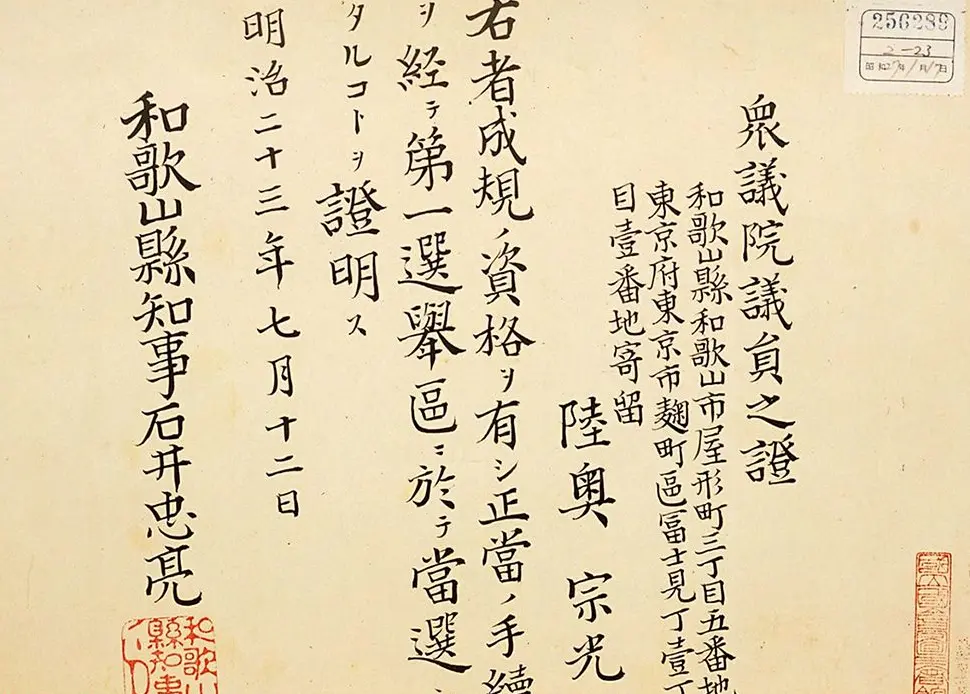 衆議院議員之證
和歌山縣和歌山市屋形町三丁目五番地
東京府東京市麹町區冨士見丁壹丁
目壹番地寄留
陸奥 宗光
右者成規ノ資格ヲ有シ正當ノ手續
ヲ経テ第一選擧區ニ於テ當選
タルコトヲ證明ス
明治二十三年七月十二日
和歌山縣知事石井忠亮
和歌山
縣知事
256289
2-23